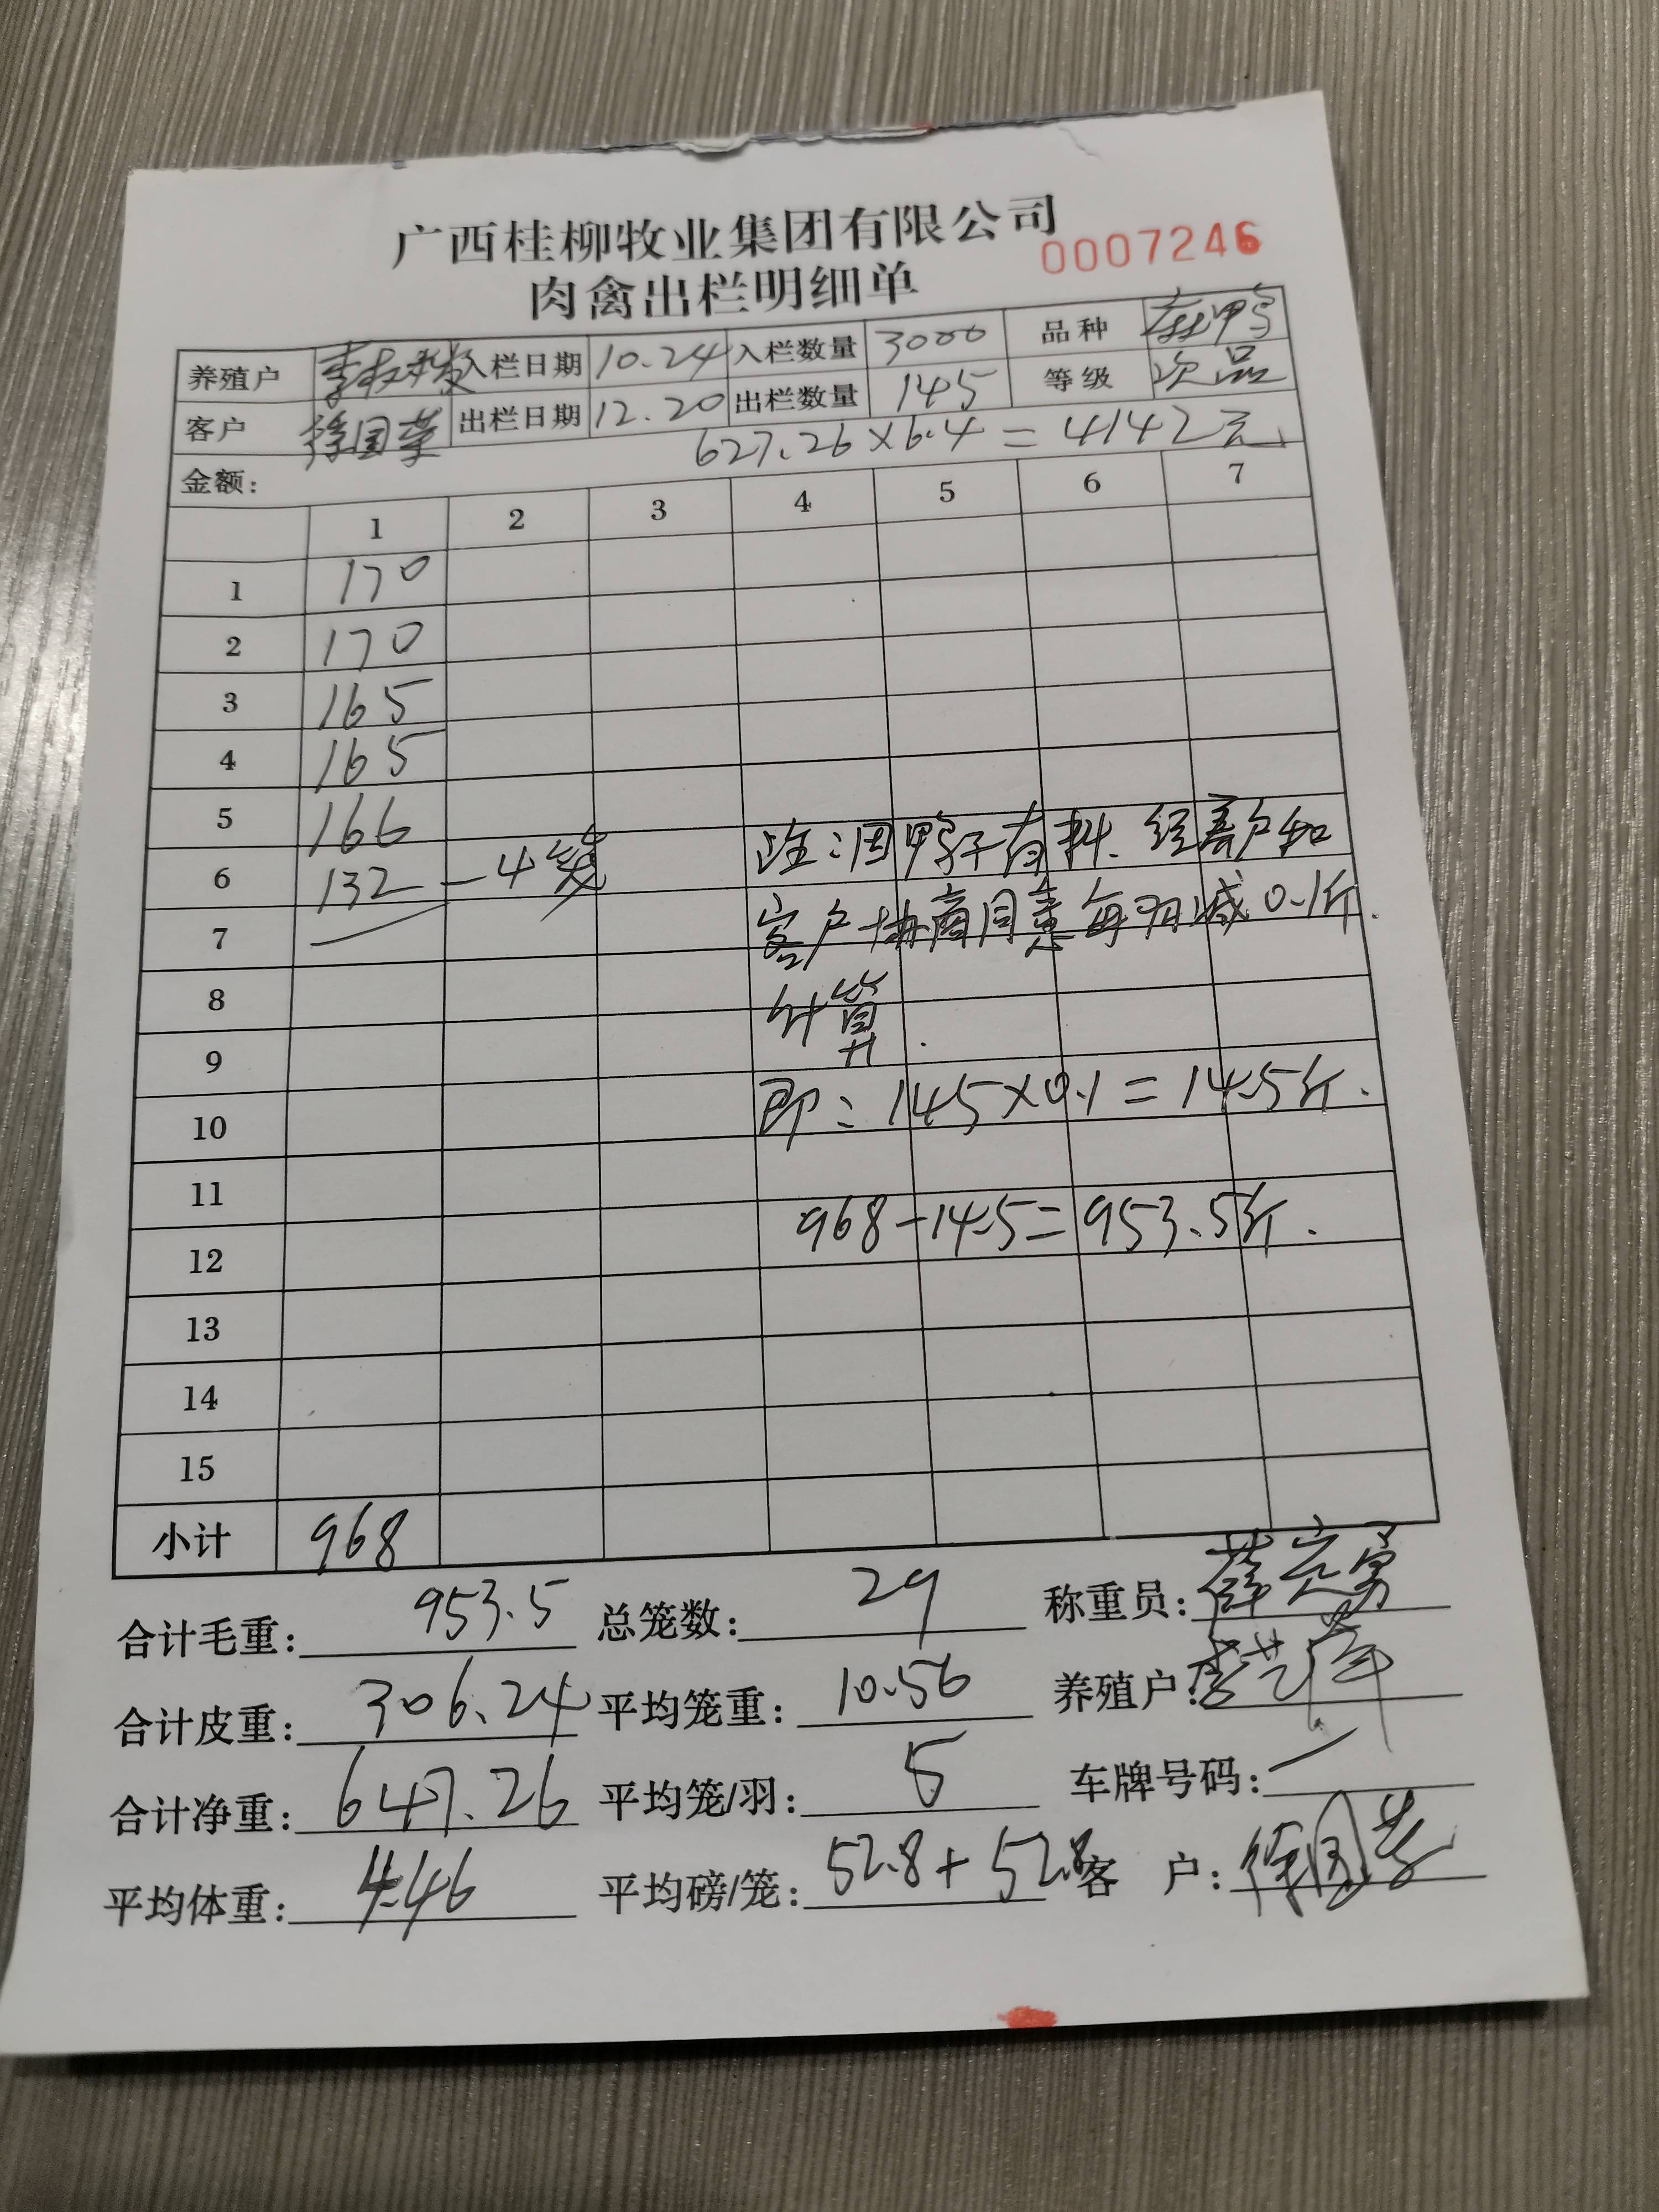 广西桂柳牧业集团有限公司
0007246
肉禽出栏明细单
养殖户 入栏日期 10.24 入栏数量 3000 品种 麻鸭
客户 徐国荣 出栏日期 12.20 出栏数量 145 等级 次品
金额: 627.26×6.4=4142元
1 2 3 4 5 6 7
1 170
2 170
3 165
4 165
5 166
6 132 — 4笼
7
8
9
10
11
12
13
14
15
注:因鸭子有料、经养户和
客户协商同意每羽减0.1斤.
计算.
即: 145×0.1=14.5斤.
968-14.5=953.5斤.
小计 968
合计毛重: 953.5 总笼数: 29 称重员:
合计皮重: 306.24 平均笼重: 10.56 养殖户:
合计净重: 647.26 平均笼/羽: 5 车牌号码:
平均体重: 4.46 平均磅/笼: 52.8+52.8 客 户: 徐国荣